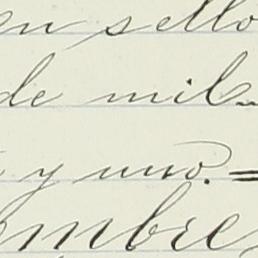 en sello
de mil
y uno. =
ombre